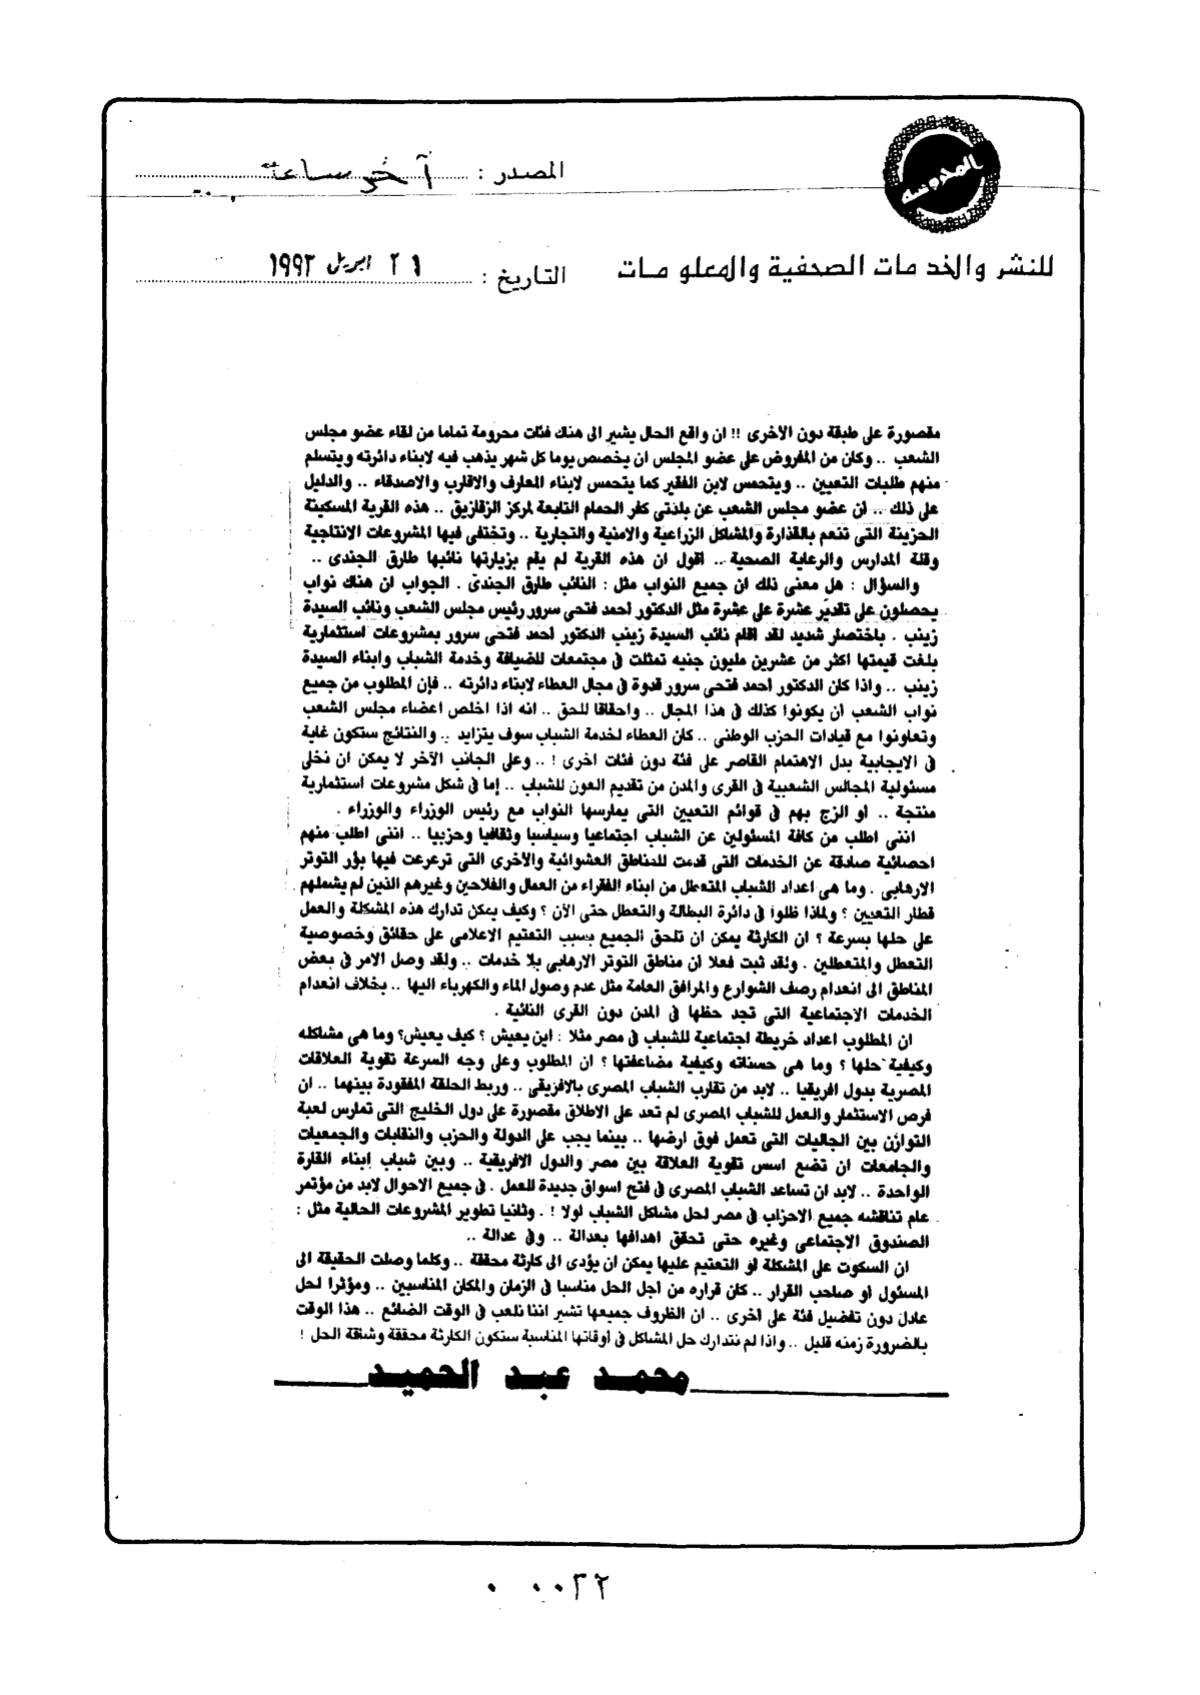 المصدر : آخر ساعة
المحروسة
للنشر والخدمات الصحفية والمعلومات
التاريخ : ٢١ ابريل ١٩٩٣
مقصورة على طبقة دون الاخرى !! ان واقع الحال يشير الى هناك فئات محرومة تماما من لقاء عضو مجلس
الشعب .. وكان من المفروض على عضو المجلس ان يخصص يوما كل شهر يذهب فيه لابناء دائرته ويتسلم
منهم طلبات التعيين .. ويتحمس لابن الفقير كما يتحمس لابناء المعارف والاقارب والاصدقاء .. والدليل
على ذلك .. أن عضو مجلس الشعب عن بلدتى كفر الحمام التابعة لمركز الزقازيق .. هذه القرية المسكينة
الحزينة التى تنعم بالقذارة والمشاكل الزراعية والامنية والتجارية .. وتختفى فيها المشروعات الانتاجية
وقلة المدارس والرعاية الصحية .. اقول ان هذه القرية لم يقم بزيارتها نائبها طارق الجندى ..
والسؤال : هل معنى ذلك ان جميع النواب مثل : النائب طارق الجندى . الجواب ان هناك نواب
يحصلون على تقدير عشرة على عشرة مثل الدكتور احمد فتحى سرور رئيس مجلس الشعب ونائب السيدة
زينب . باختصار شديد لقد اقام نائب السيدة زينب الدكتور احمد فتحى سرور بمشروعات استثمارية
بلغت قيمتها اكثر من عشرين مليون جنيه تمثلت فى مجتمعات للضيافة وخدمة الشباب وابناء السيدة
زينب .. واذا كان الدكتور احمد فتحى سرور قدوة فى مجال العطاء لابناء دائرته .. فإن المطلوب من جميع
نواب الشعب أن يكونوا كذلك فى هذا المجال .. واحقاقا للحق .. انه اذا اخلص اعضاء مجلس الشعب
وتعاونوا مع قيادات الحزب الوطنى .. كان العطاء لخدمة الشباب سوف يتزايد .. والنتائج ستكون غاية
فى الايجابية بدل الاهتمام القاصر على فئة دون فئات اخرى ! .. وعلى الجانب الآخر لا يمكن ان نخلى
مسئولية المجالس الشعبية فى القرى والمدن من تقديم العون للشباب .. إما فى شكل مشروعات استثمارية
منتجة .. او الزج بهم فى قوائم التعيين التى يمارسها النواب مع رئيس الوزراء والوزراء .
اننى اطلب من كافة المسئولين عن الشباب اجتماعيا وسياسيا وثقافيا وحزبيا .. اننى اطلب منهم
احصائية صادقة عن الخدمات التى قدمت للمناطق العشوائية والاخرى التى ترعرعت فيها بؤر التوتر
الارهابى . وما هى اعداد الشباب المتعطل من ابناء الفقراء من العمال والفلاحين وغيرهم الذين لم يشملهم
قطار التعيين ؟ ولماذا ظلوا فى دائرة البطالة والتعطل حتى الآن ؟ وكيف يمكن تدارك هذه المشكلة والعمل
على حلها بسرعة ؟ ان الكارثة يمكن ان تلحق الجميع بسبب التعتيم الاعلامى على حقائق وخصوصية
التعطل والمتعطلين . ولقد ثبت فعلا أن مناطق التوتر الارهابى بلا خدمات .. ولقد وصل الامر فى بعض
المناطق الى انعدام رصف الشوارع والمرافق العامة مثل عدم وصول الماء والكهرباء اليها .. بخلاف انعدام
الخدمات الاجتماعية التى تجد حظها فى المدن دون القرى النائية .
ان المطلوب اعداد خريطة اجتماعية للشباب فى مصر مثلا : اين يعيش ؟ كيف يعيش؟ وما هى مشاكله
وكيفية حلها ؟ وما هى حسناته وكيفية مضاعفتها ؟ ان المطلوب وعلى وجه السرعة تقوية العلاقات
المصرية بدول افريقيا .. لابد من تقارب الشباب المصرى بالافريقى .. وربط الحلقة المفقودة بينهما .. ان
فرص الاستثمار والعمل للشباب المصرى لم تعد على الاطلاق مقصورة على دول الخليج التى تمارس لعبة
التوازن بين الجاليات التى تعمل فوق ارضها .. بينما يجب على الدولة والحزب والنقابات والجمعيات
والجامعات ان تضع اسس تقوية العلاقة بين مصر والدول الافريقية .. وبين شباب ابناء القارة
الواحدة .. لابد ان تساعد الشباب المصرى فى فتح اسواق جديدة للعمل . فى جميع الاحوال لابد من مؤتمر
عام تناقشه جميع الاحزاب فى مصر لحل مشاكل الشباب اولا ! . وثانيا تطوير المشروعات الحالية مثل :
الصندوق الاجتماعى وغيره حتى تحقق اهدافها بعدالة .. وفى عدالة ..
ان السكوت على المشكلة او التعتيم عليها يمكن ان يؤدى الى كارثة محققة .. وكلما وصلت الحقيقة الى
المسئول او صاحب القرار .. كان قراره من اجل الحل مناسبا فى الزمان والمكان المناسبين .. ومؤثرا لحل
عادل دون تفضيل فئة على اخرى .. ان الظروف جميعها تشير اننا نلعب فى الوقت الضائع .. هذا الوقت
بالضرورة زمنه قليل .. واذا لم نتدارك حل المشاكل فى أوقاتها المناسبة ستكون الكارثة محققة وشاقة الحل !
محمد عبد الحميد
٠ ٠٠٣٢